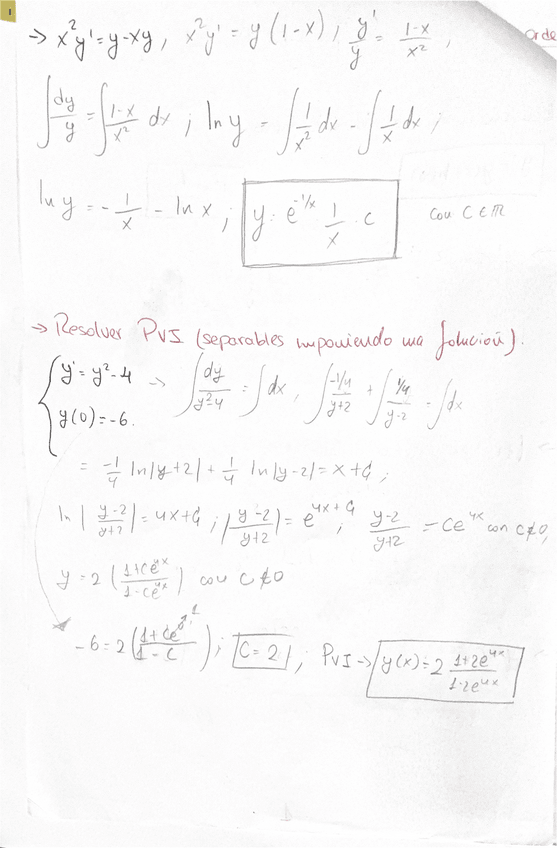 1
→ x²y' = y-xy, x²y' = y(1-x); y'/y = (1-x)/x²,
orde
∫ dy/y = ∫ (1-x)/x² dx ; ln y = ∫ 1/x² dx - ∫ 1/x dx ;
ln y = -1/x - ln x ; y = e^(-1/x) 1/x · c con C ∈ ℝ
→ Resolver PVI (separables imponiendo una solución).
{ y' = y²-4 → ∫ dy/(y²-4) = ∫ dx, ∫ (-1/4)/(y+2) + ∫ (1/4)/(y-2) = ∫ dx
y(0) = -6.
= -1/4 ln|y+2| + 1/4 ln|y-2| = x + C₁ ;
ln |(y-2)/(y+2)| = 4x + C₁ ; |(y-2)/(y+2)| = e^(4x + C₁) ; (y-2)/(y+2) = Ce^(4x) con C≠0,
y = 2 ((1+Ce^(4x))/(1-Ce^(4x))) con C≠0
-6 = 2 ((1+Ce^0)/(1-C)) ; C = 2 ; PVI → y(x) = 2 (1+2e^(4x))/(1-2e^(4x))